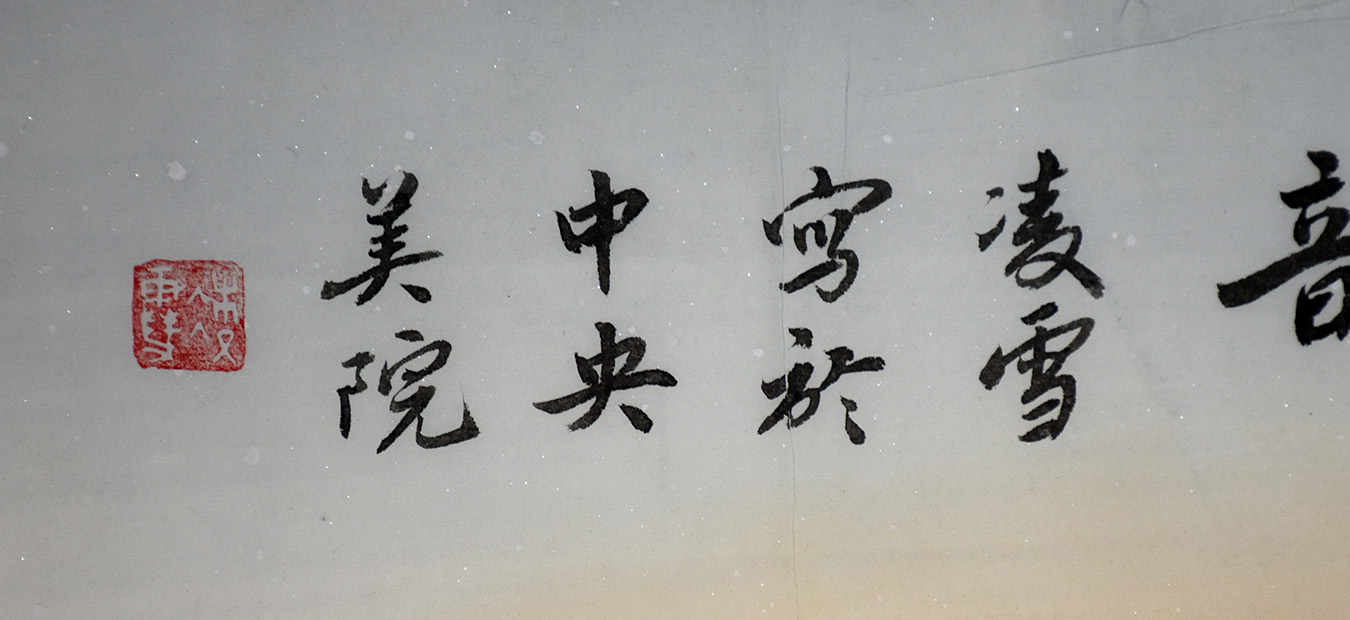 音
凌雪
寫於
中央
美院